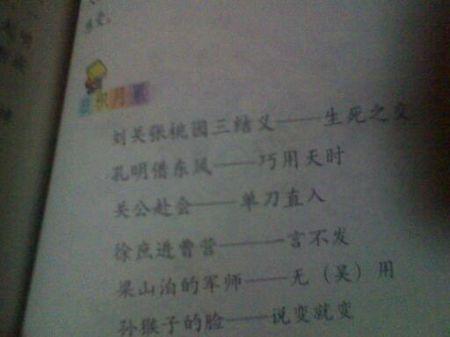 日积月累
刘关张桃园三结义——生死之交
孔明借东风——巧用天时
关公赴会——单刀直入
徐庶进曹营——一言不发
梁山泊的军师——无（吴）用
孙猴子的脸——说变就变